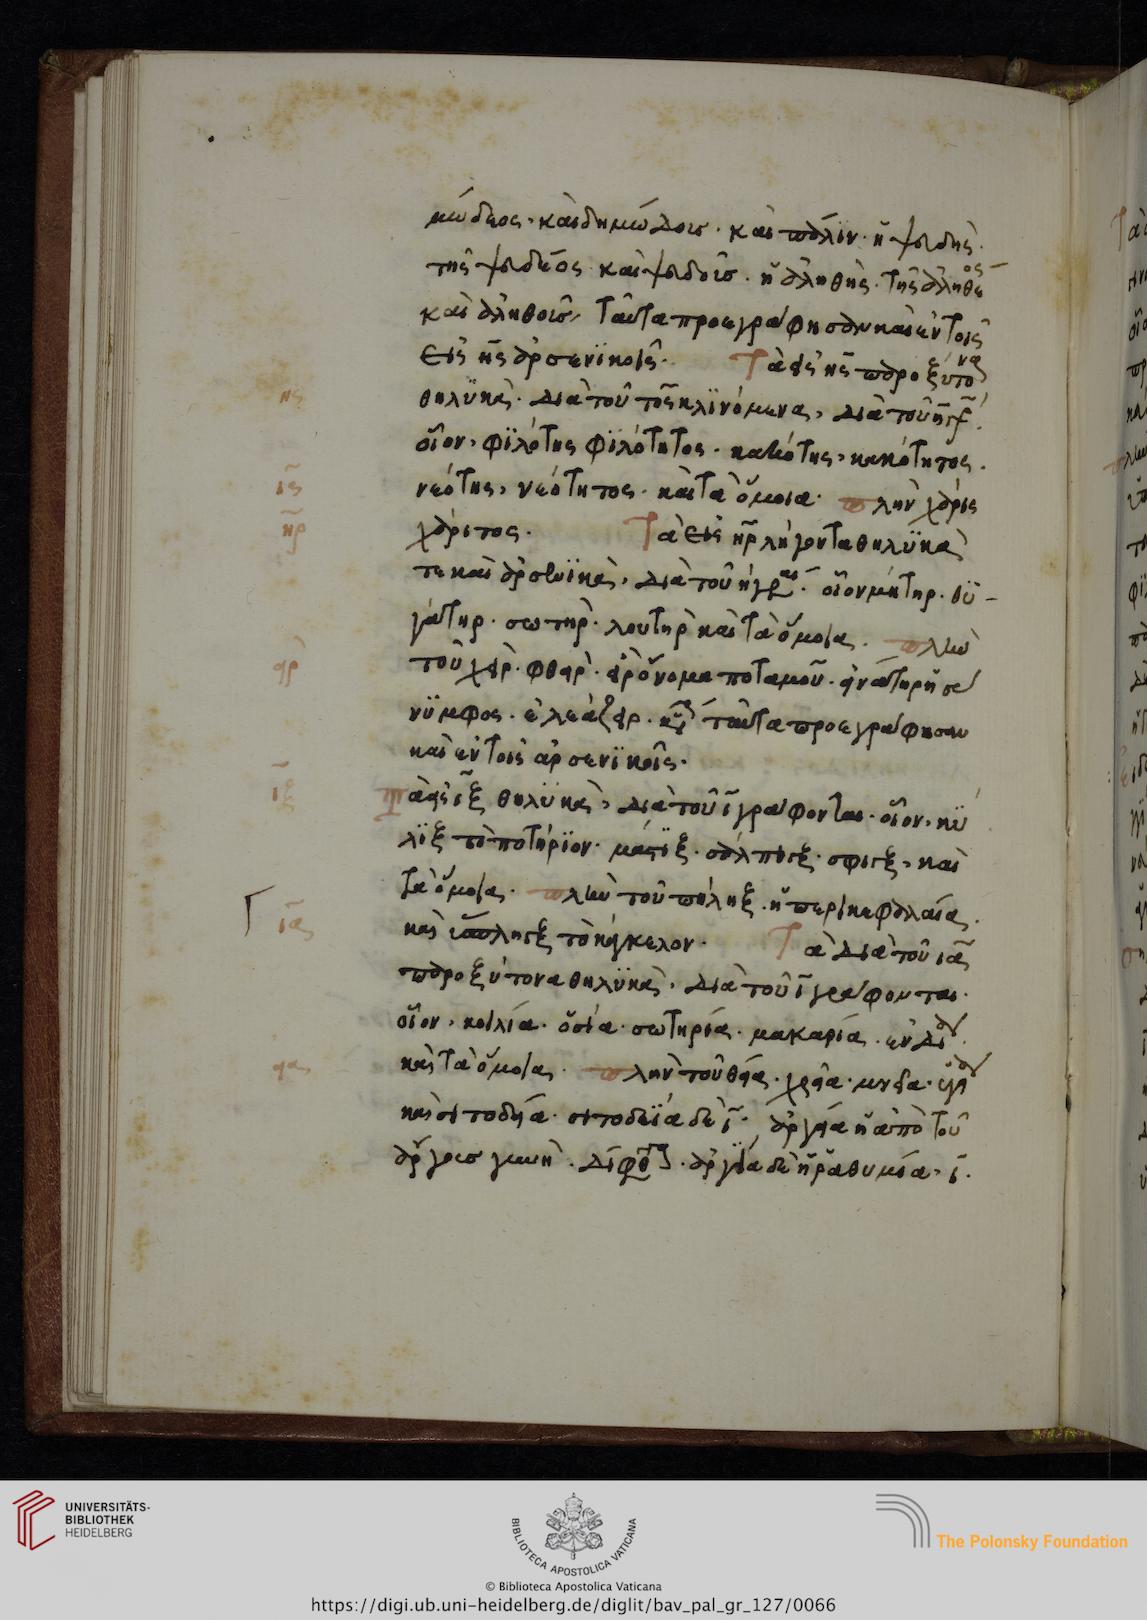 μώδεος· καὶ δημώδοις· καὶ πάλιν· ἡ ψευδὴς·
τῆς ψευδέος καὶ ψευδοῖς· ἡ ἀληθὴς· τῆς ἀληθέος
καὶ ἀληθοῖς, ταῦτα προεγράφησαν καὶ ἐν τοῖς
εἰς ης ἀρσενϊκοῖς· Τὰ εἰς ης παροξύτονα
θηλϋκὰ· διὰ τοῦ τος κλϊνόμενα, διὰ τοῦ η
οἷον, φϊλότης φϊλότητος· κακότης, κακότητος·
νεότης, νεότητος· καὶ τὰ ὅμοια· πλὴν χάρις
χάριτος· Τὰ εἰς ηρ λήγοντα θηλϋκὰ
τε καὶ ἀρσενϊκὰ, διὰ τοῦ η γρ οἷον μήτηρ· θϋ-
γάτηρ· σωτὴρ· λουτὴρ καὶ τὰ ὅμοια· πλὴν
τοῦ χεὶρ· φθεὶρ· εἲρ ὄνομα ποταμοῦ·
νϋμφος· ἐλεάζειρ· ταῦτα προεγράφησαν
καὶ ἐν τοῖς ἀρσενϊκοῖς·
Τὰ εἰς ιξ θηλϋκὰ, διὰ τοῦ ι γράφονται· οἷον, κύ
λϊξ τὸ ποτήρϊον· μάστϊξ· σάλπιγξ· σφιγξ, καὶ
τὰ ὅμοια· πλὴν τοῦ πήληξ· ἡ περικεφαλαία·
καὶ τὸ κάγκελον· Τὰ διὰ τοῦ ια
παροξύτονα θηλϋκὰ, διὰ τοῦ ι γράφονται·
οἷον, κοιλία· ὁσία· σωτηρία· μακαρία·
καὶ τὰ ὅμοια· πλὴν τοῦ θεία· χρεία· μνεία·
καὶ σιτοδεία· σιτοδεϊα δὲ ι· ἀργεία ἡ ἀπὸ τοῦ
ἄργους γυνὴ· δίφθογγος· ἀργϊα δὲ ἡ ῥαθυμία, ι·
ης
ις
ηρ
ειρ
ιξ
ιας
ειας
UNIVERSITÄTS-
BIBLIOTHEK
HEIDELBERG
BIBLIOTECA APOSTOLICA VATICANA
The Polonsky Foundation
© Biblioteca Apostolica Vaticana
https://digi.ub.uni-heidelberg.de/diglit/bav_pal_gr_127/0066